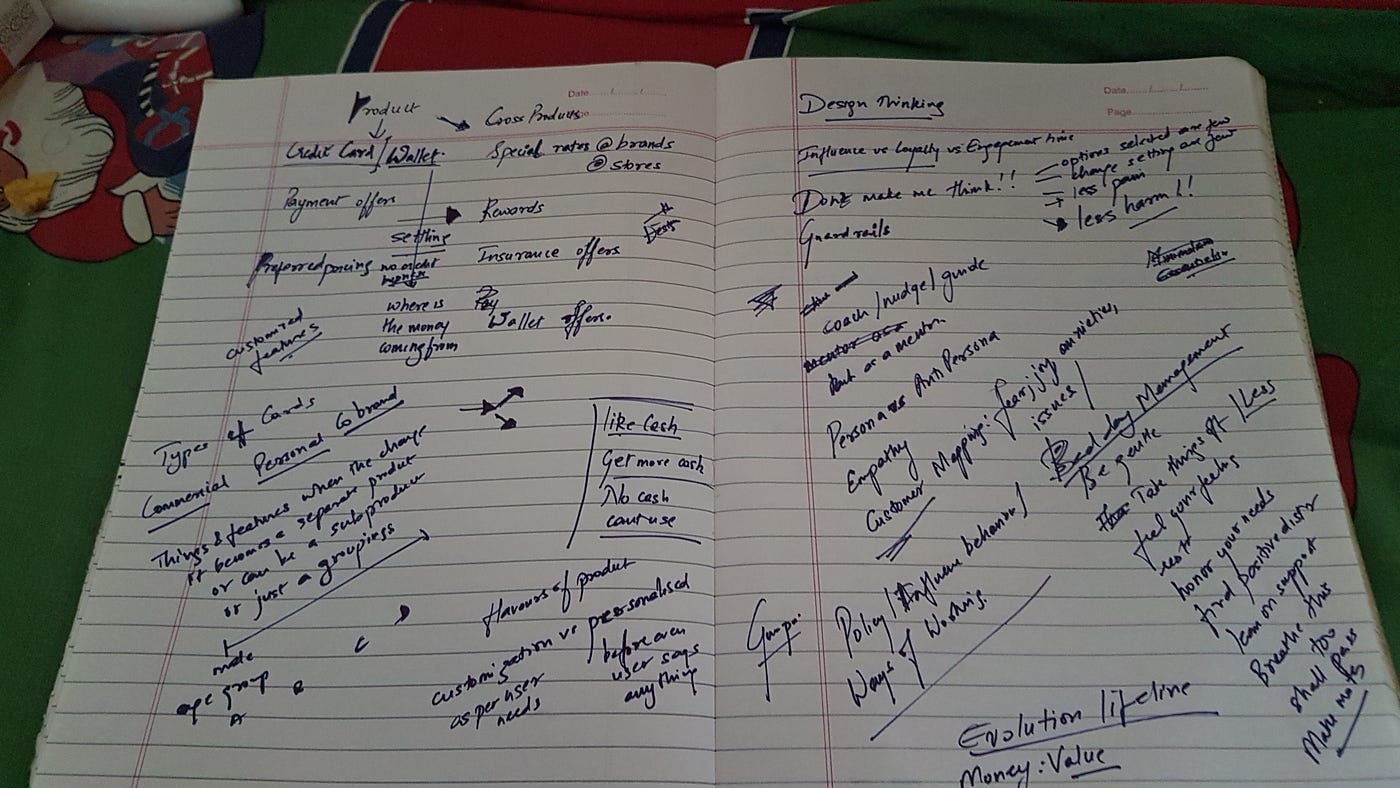 Date
Product
Cross Products
Credit Card / Wallet
Special rates @ brands
@ stores
Payment offers
Rewards
settling
Preferred pricing
no credit
Insurance offers
where is
the money
coming from
Wallet offers.
customized
features
Types of Cards
Commercial Personal Cobrand
Things & features when the change
it becomes a separate product
or can be a subproduct
or just a groupings
like Cash
Get more cash
No cash
cant use
male
age group
A
B
C
flavours of product
customization vs personalised
as per user
needs
before even
user says
anything
Date
Page
Design Thinking
Influence vs Loyalty vs Engagement time
Dont make me think!!
options selected are few
change setting are few
less pain
less harm!!
Guard rails
coach / nudge / guide
but or a mentor
Persona vs Anti Persona
Empathy
Customer Mapping: fear, joy, anxieties,
issues /
Policy / Influence behaviour /
Ways of Working
Bad day Management
Be gentle
Take things off / Less
feel your feelings
rest
honor your needs
find positive distr
lean on support
Breathe this
too
shall pass
Make notes
Evolution lifeline
Money: Value